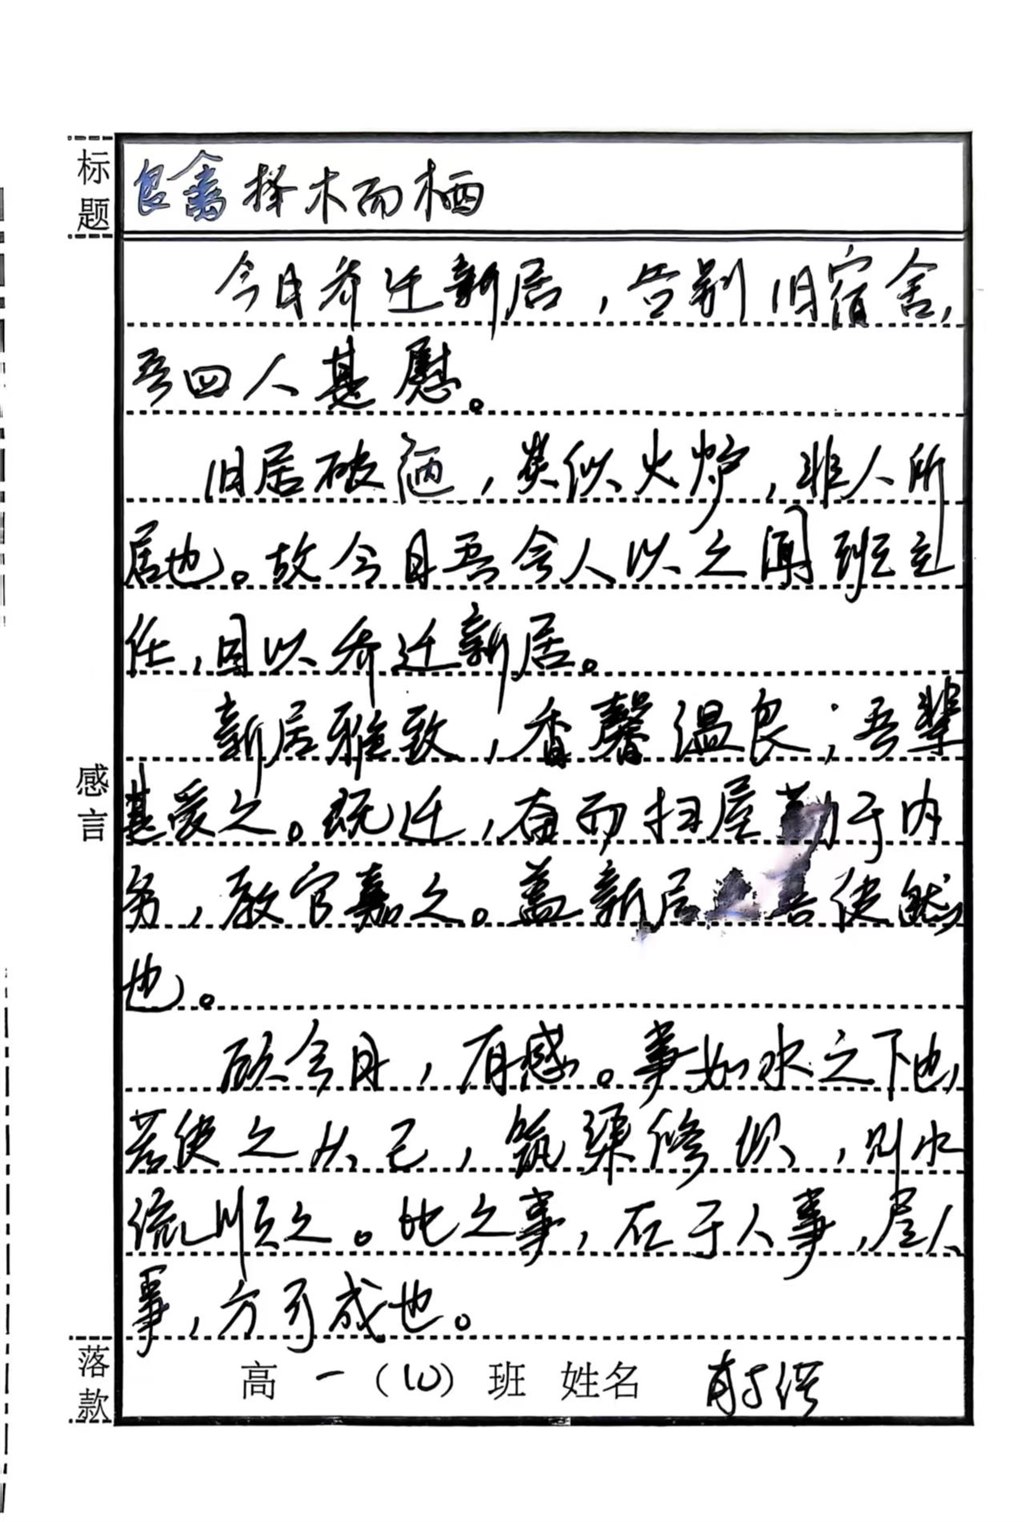 标题
良禽择木而栖
今日乔迁新居，告别旧宿舍，
吾四人甚慰。
旧居破陋，类似火炉，非人所
居也。故今日吾令人以之闻班主
任，因以乔迁新居。
新居雅致，香馨温良；吾辈
甚爱之。既迁，奋而扫屋勤于内
务，教官嘉之。盖新居 吾使然
也。
感言
顾今日，有感。事如水之下也，
若使之从己，筑渠修坝，则水
流顺之。此之事，在于人事，尽人
事，方可成也。
落款
高一（10）班 姓名